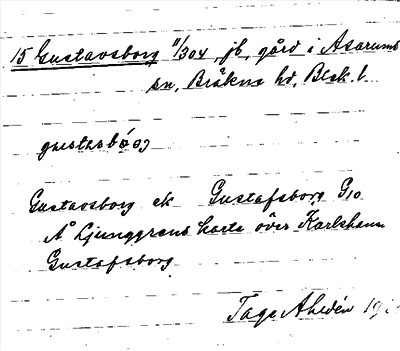 15 Gustavsborg 11/304, jb, gård i Asarums
sn, Bräkne hd, Blek. l.
gustasbórj
Gustavsborg ek Gustafsborg G10
Å Ljunggrens karta över Karlshamn
Gustafsborg
Tage Ahldén 19